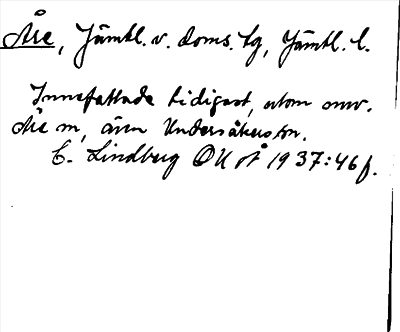 Åre, Jämtl. v. doms. tg, Jämtl. l.
Innefattade tidigast, utom nuv.
Åre sn, även Undersåkers sn.
E. Lindberg OUÅ 1937:46f.